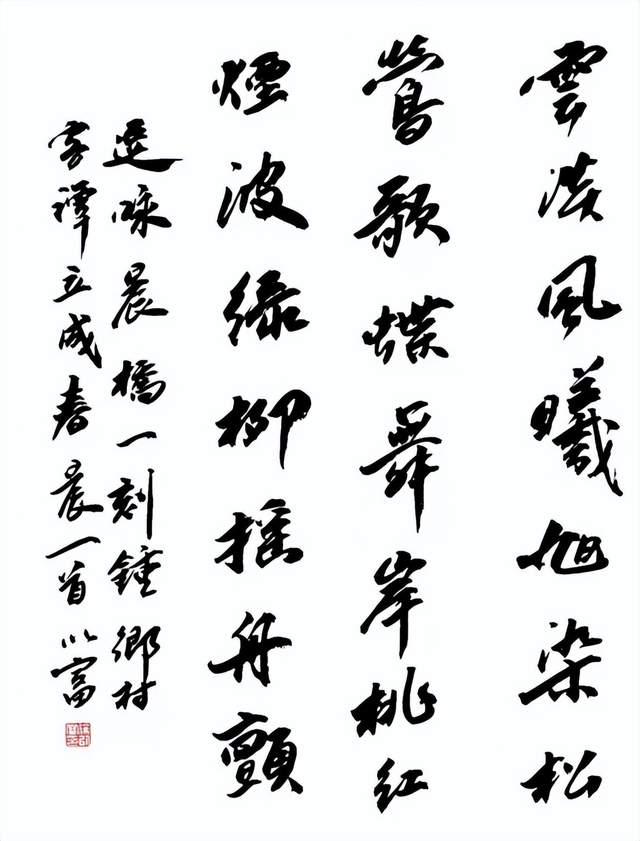 雲淡風曦旭染松
鶯歌蝶舞岸桃紅
煙波綠柳搖舟顫
逸咏晨橋一刻鍾鄉村
客譚立成春晨一首 以富